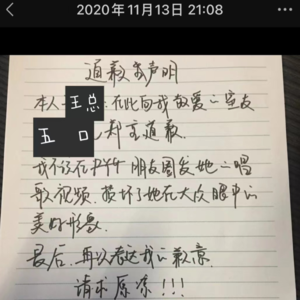 2020年11月13日 21:08
道歉声明
本人 王总 在此向我敬爱的室友
五 口 郑重道歉
我不该在 朋友圈发她的唱
歌视频,破坏了她在大众眼中的
美好形象.
最后,再次表达我的歉意
请求原谅!!!